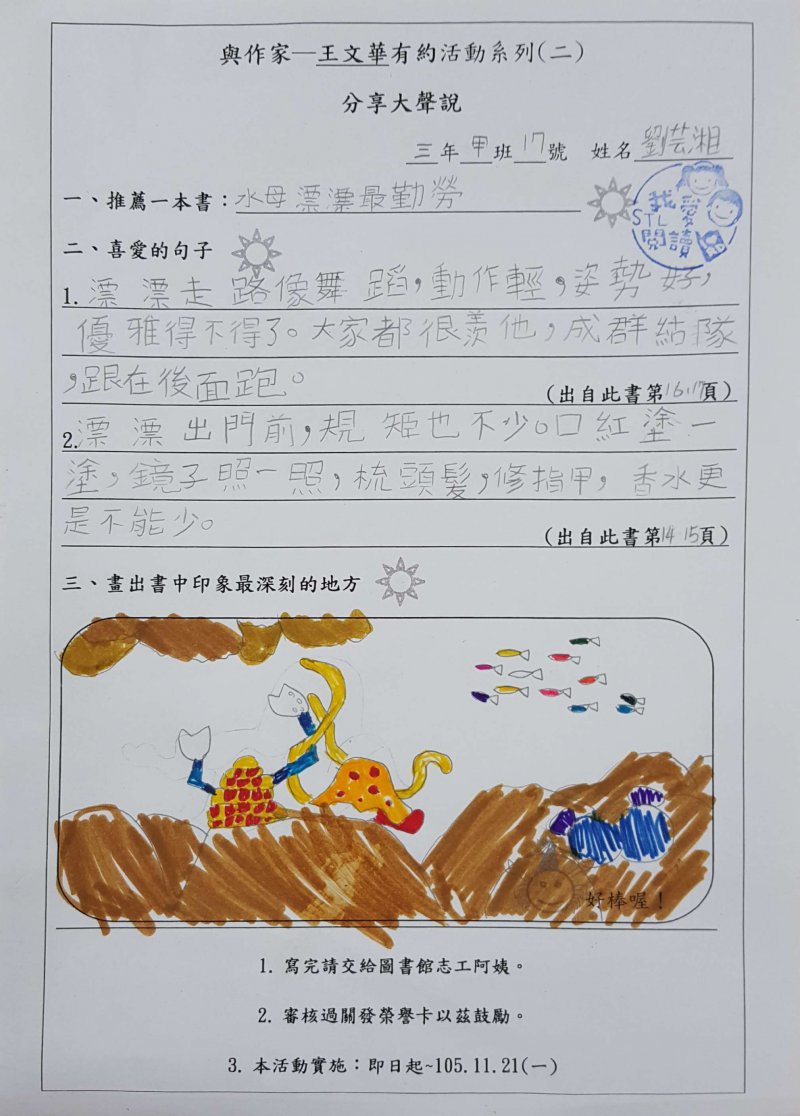 與作家—王文華有約活動系列(二)
分享大聲說
三年甲班17號 姓名劉芸湘
一、推薦一本書：水母漂漂最勤勞
我愛
STL
閱讀
二、喜愛的句子
1. 漂漂走路像舞蹈，動作輕，姿勢好，
優雅得不得了。大家都很羨他，成群結隊
，跟在後面跑。
(出自此書第16.17頁)
2. 漂漂出門前，規矩也不少。口紅塗一
塗，鏡子照一照，梳頭髮，修指甲，香水更
是不能少。
(出自此書第14 15頁)
三、畫出書中印象最深刻的地方
好棒喔！
1. 寫完請交給圖書館志工阿姨。
2. 審核過關發榮譽卡以茲鼓勵。
3. 本活動實施：即日起~105.11.21(一)